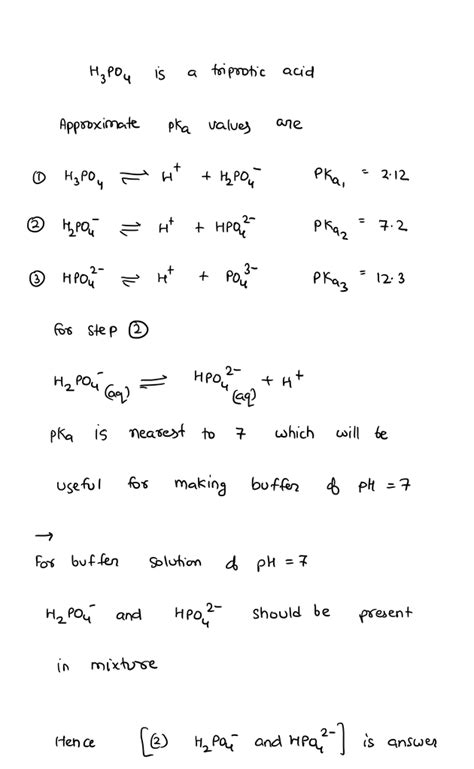 H₃PO₄ is a triprotic acid
Approximate pka values are
① H₃PO₄ ⇌ H⁺ + H₂PO₄⁻ PKa₁ = 2.12
② H₂PO₄⁻ ⇌ H⁺ + HPO₄²⁻ PKa₂ = 7.2
③ HPO₄²⁻ ⇌ H⁺ + PO₄³⁻ PKa₃ = 12.3
for step ②
H₂PO₄⁻(aq) ⇌ HPO₄²⁻(aq) + H⁺
pka is nearest to 7 which will be
useful for making buffer of pH = 7
→
For buffer solution of pH = 7
H₂PO₄⁻ and HPO₄²⁻ should be present
in mixture
Hence [(2) H₂PO₄⁻ and HPO₄²⁻] is answer